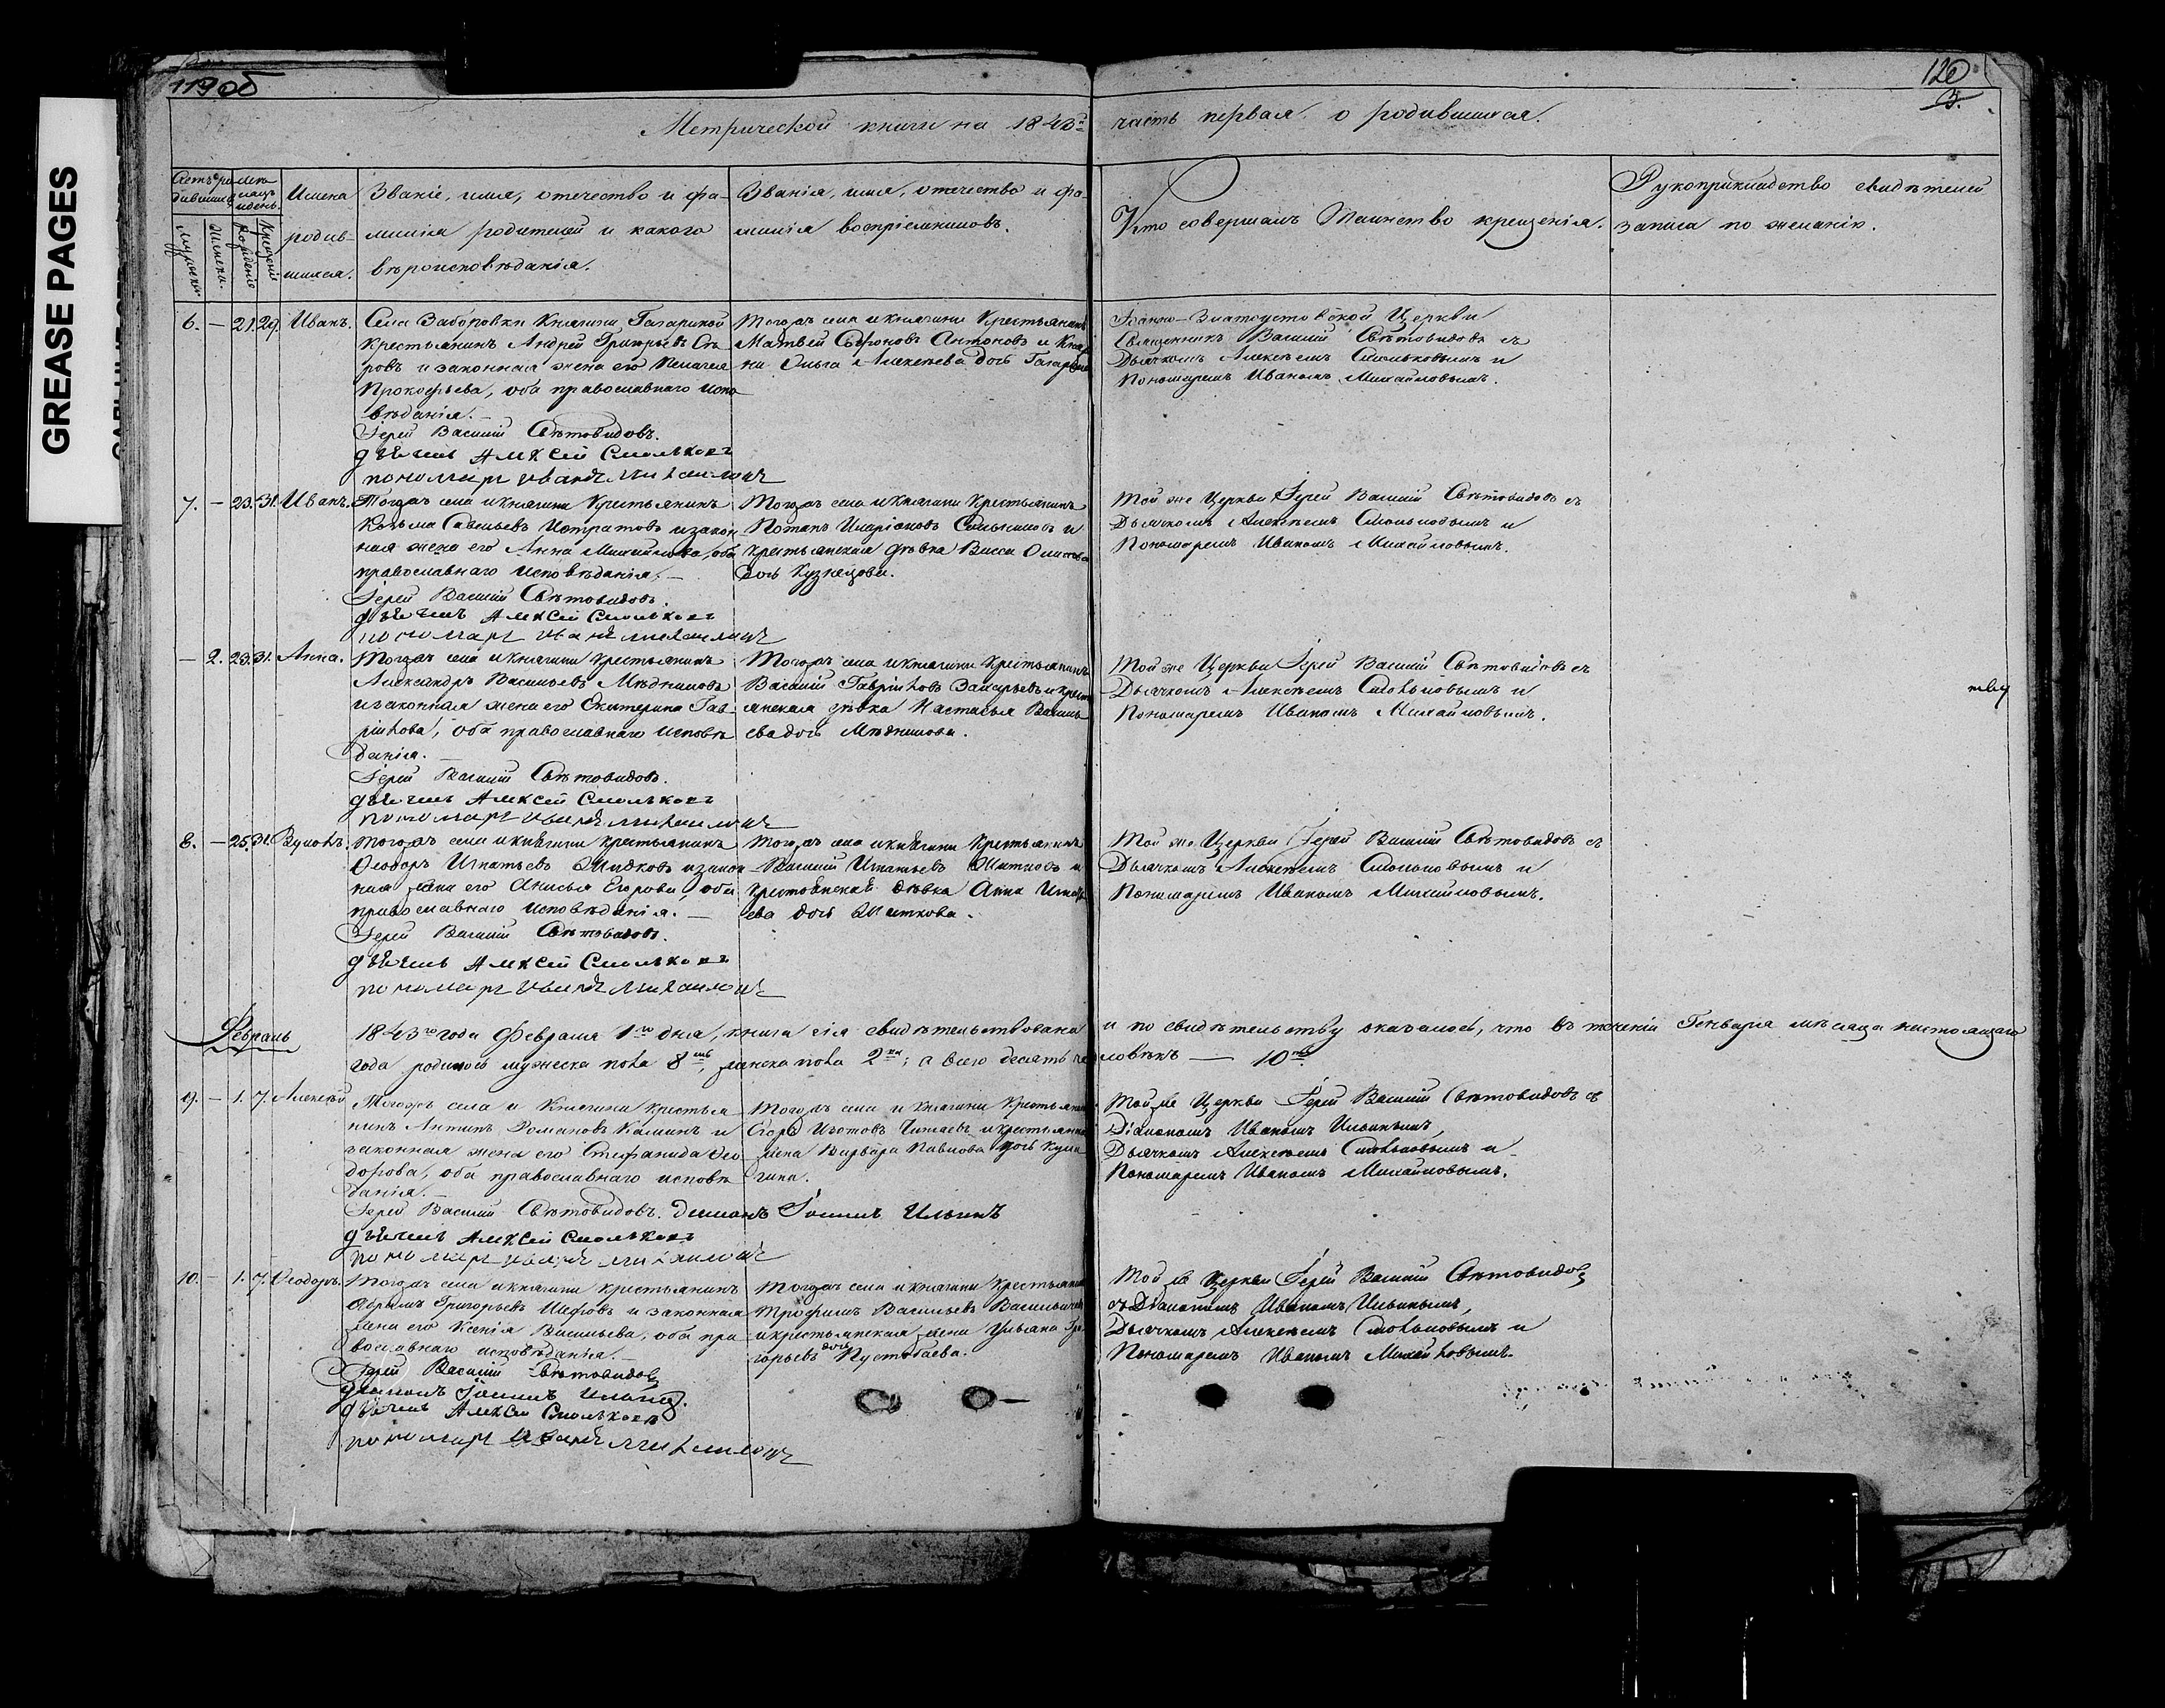 119 об
120
3.
GREASE PAGES
Метрической книги на 1843й часть первая о родившихся.
Счетъ родившихся
мужеска
женска.
месяцъ и день
рожденіе
крещеніе
Имена родившихся.
Званіе, имя, отечество и фа-
милія родителей и какого
вѣроисповѣданія.
Званія, имя, отечество и фа-
милія воспріемниковъ.
Кто совершалъ Таинство крещенія.
Рукоприкладство свидѣтелей
записи по желанію.
6. — 21. 29. Иванъ.
Села Заборовки Княгини Гагариной
крестьянинъ Андрей Григорьевъ
ровъ и законная жена его Пелагея
Прокофьева, оба православнаго испо
вѣданія. —
Іерей Василій Свѣтовидовъ.
дьячекъ Алексей Смольковъ
пономарь Иванъ Михаиловъ
Тогожъ села и княгини Крестьянинъ
Матвей Софроновъ Антоновъ и
на Ольга Алексѣева дочь
Іоанно-Златоустовской Церкви
Священникъ Василій Свѣтовидовъ съ
Дьячкомъ Алексѣемъ Смольковымъ и
Пономаремъ Иваномъ Михайловымъ.
7. — 23. 31. Иванъ.
Тогожъ села и княгини Крестьянинъ
Козьма Савельевъ и закон
ная жена его Анна Михайлова, оба
православнаго исповѣданія. —
Іерей Василій Свѣтовидовъ.
дьячекъ Алексей Смольковъ
пономарь Иванъ Михаиловъ
Тогожъ села и княгини Крестьянинъ
Потапъ Иларіоновъ и
крестьянская дѣвка Васса
дочь Кузнецова.
Той же Церкви Іерей Василій Свѣтовидовъ съ
Дьячкомъ Алексѣемъ Смольковымъ и
Пономаремъ Иваномъ Михайловымъ.
— 2. 23. 31. Анна.
Тогожъ села и княгини крестьянинъ
Александръ Васильевъ Мѣдниковъ
и законная жена его Екатерина Гав-
рилова, оба православнаго исповѣ
данія. —
Іерей Василій Свѣтовидовъ.
дьячекъ Алексей Смольковъ
пономарь Иванъ Михаиловъ
Тогожъ села и княгини Крестьянинъ
Василій Гавриловъ и крест
янская дѣвка Настасья Василь
ева дочь Мѣдникова.
Той же Церкви Іерей Василій Свѣтовидовъ съ
Дьячкомъ Алексѣемъ Смольковымъ и
Пономаремъ Иваномъ Михайловымъ.
8. — 25. 31.
Тогожъ села и княгини крестьянинъ
Ѳеодоръ Игнатьевъ и закон
ная жена его Анисья Егорова, оба
православнаго исповѣданія. —
Іерей Василій Свѣтовидовъ.
дьячекъ Алексей Смольковъ
пономарь Иванъ Михаиловъ
Тогожъ села и княгини Крестьянинъ
Василій Игнатьевъ и
крестьянская дѣвка Анна Игнать
ева дочь
Той же Церкви Іерей Василій Свѣтовидовъ съ
Дьячкомъ Алексѣемъ Смольковымъ и
Пономаремъ Иваномъ Михайловымъ.
Февраль
1843го года Февраля 1го дня, книга сія свидѣтельствована и по свидѣтельству оказалось, что въ теченіи Генваря мѣсяца настоящаго
года родилось мужеска пола 8мь, женска пола 2ва; а всего десять человѣкъ — 10ть
9. — 1. 7. Алексѣй
Тогожъ села и Княгини крестья-
нинъ Антипъ Романовъ Калинъ и
законная жена его Стефанида Ѳео
дорова, оба православнаго исповѣ
данія. —
Іерей Василій Свѣтовидовъ. диаконъ Іоаннъ Ильинъ
дьячекъ Алексей Смольковъ
пономарь Иванъ Михаиловъ
Тогожъ села и княгини Крестьянинъ
Егоръ и крестьянская
жена Варвара Павлова дочь
гина.
Той же Церкви Іерей Василій Свѣтовидовъ съ
Діакономъ Иваномъ Ильинымъ,
Дьячкомъ Алексѣемъ Смольковымъ и
Пономаремъ Иваномъ Михайловымъ.
10. — 1. 7. Ѳеодоръ.
Тогожъ села и княгини крестьянинъ
Абрамъ Григорьевъ и законная
жена его Ксенія Васильева, оба пра
вославнаго исповѣданія. —
Іерей Василій Свѣтовидовъ
диаконъ Іоаннъ Ильинъ.
дьячекъ Алексей Смольковъ
пономарь Иванъ Михаиловъ
Тогожъ села и княгини Крестьянинъ
Трофимъ Васильевъ
и крестьянская жена Ульяна Гри
горьева дочь Пустобаева.
Той же Церкви Іерей Василій Свѣтовидовъ
съ Діакономъ Иваномъ Ильинымъ,
Дьячкомъ Алексѣемъ Смольковымъ и
Пономаремъ Иваномъ Михайловымъ.